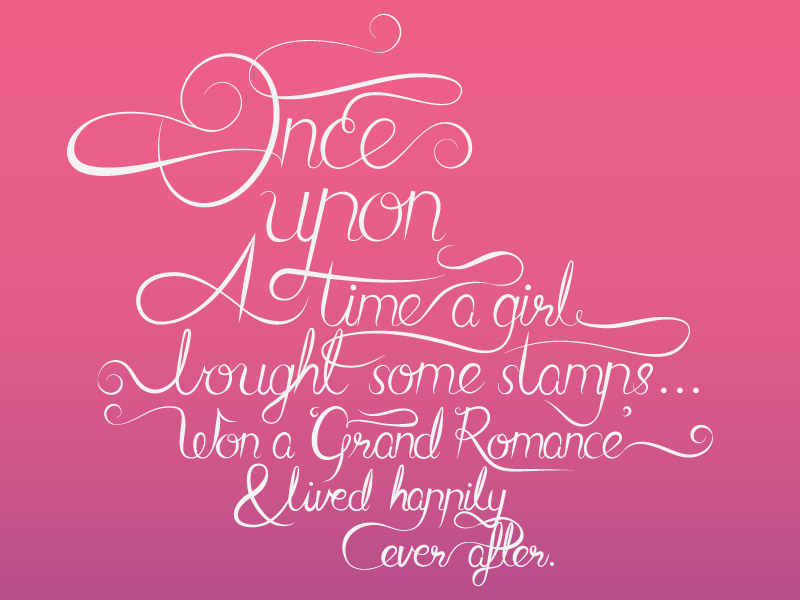 Once
upon
A time a girl
bought some stamps...
Won a 'Grand Romance'
& lived happily
ever after.